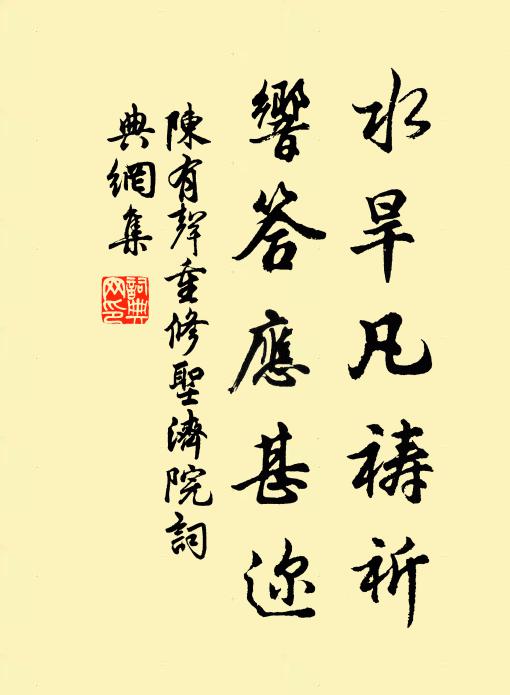 水旱凡祷祈
響答應甚迩
陳有聲重修聖濟院詞
典網集
詞典
网印